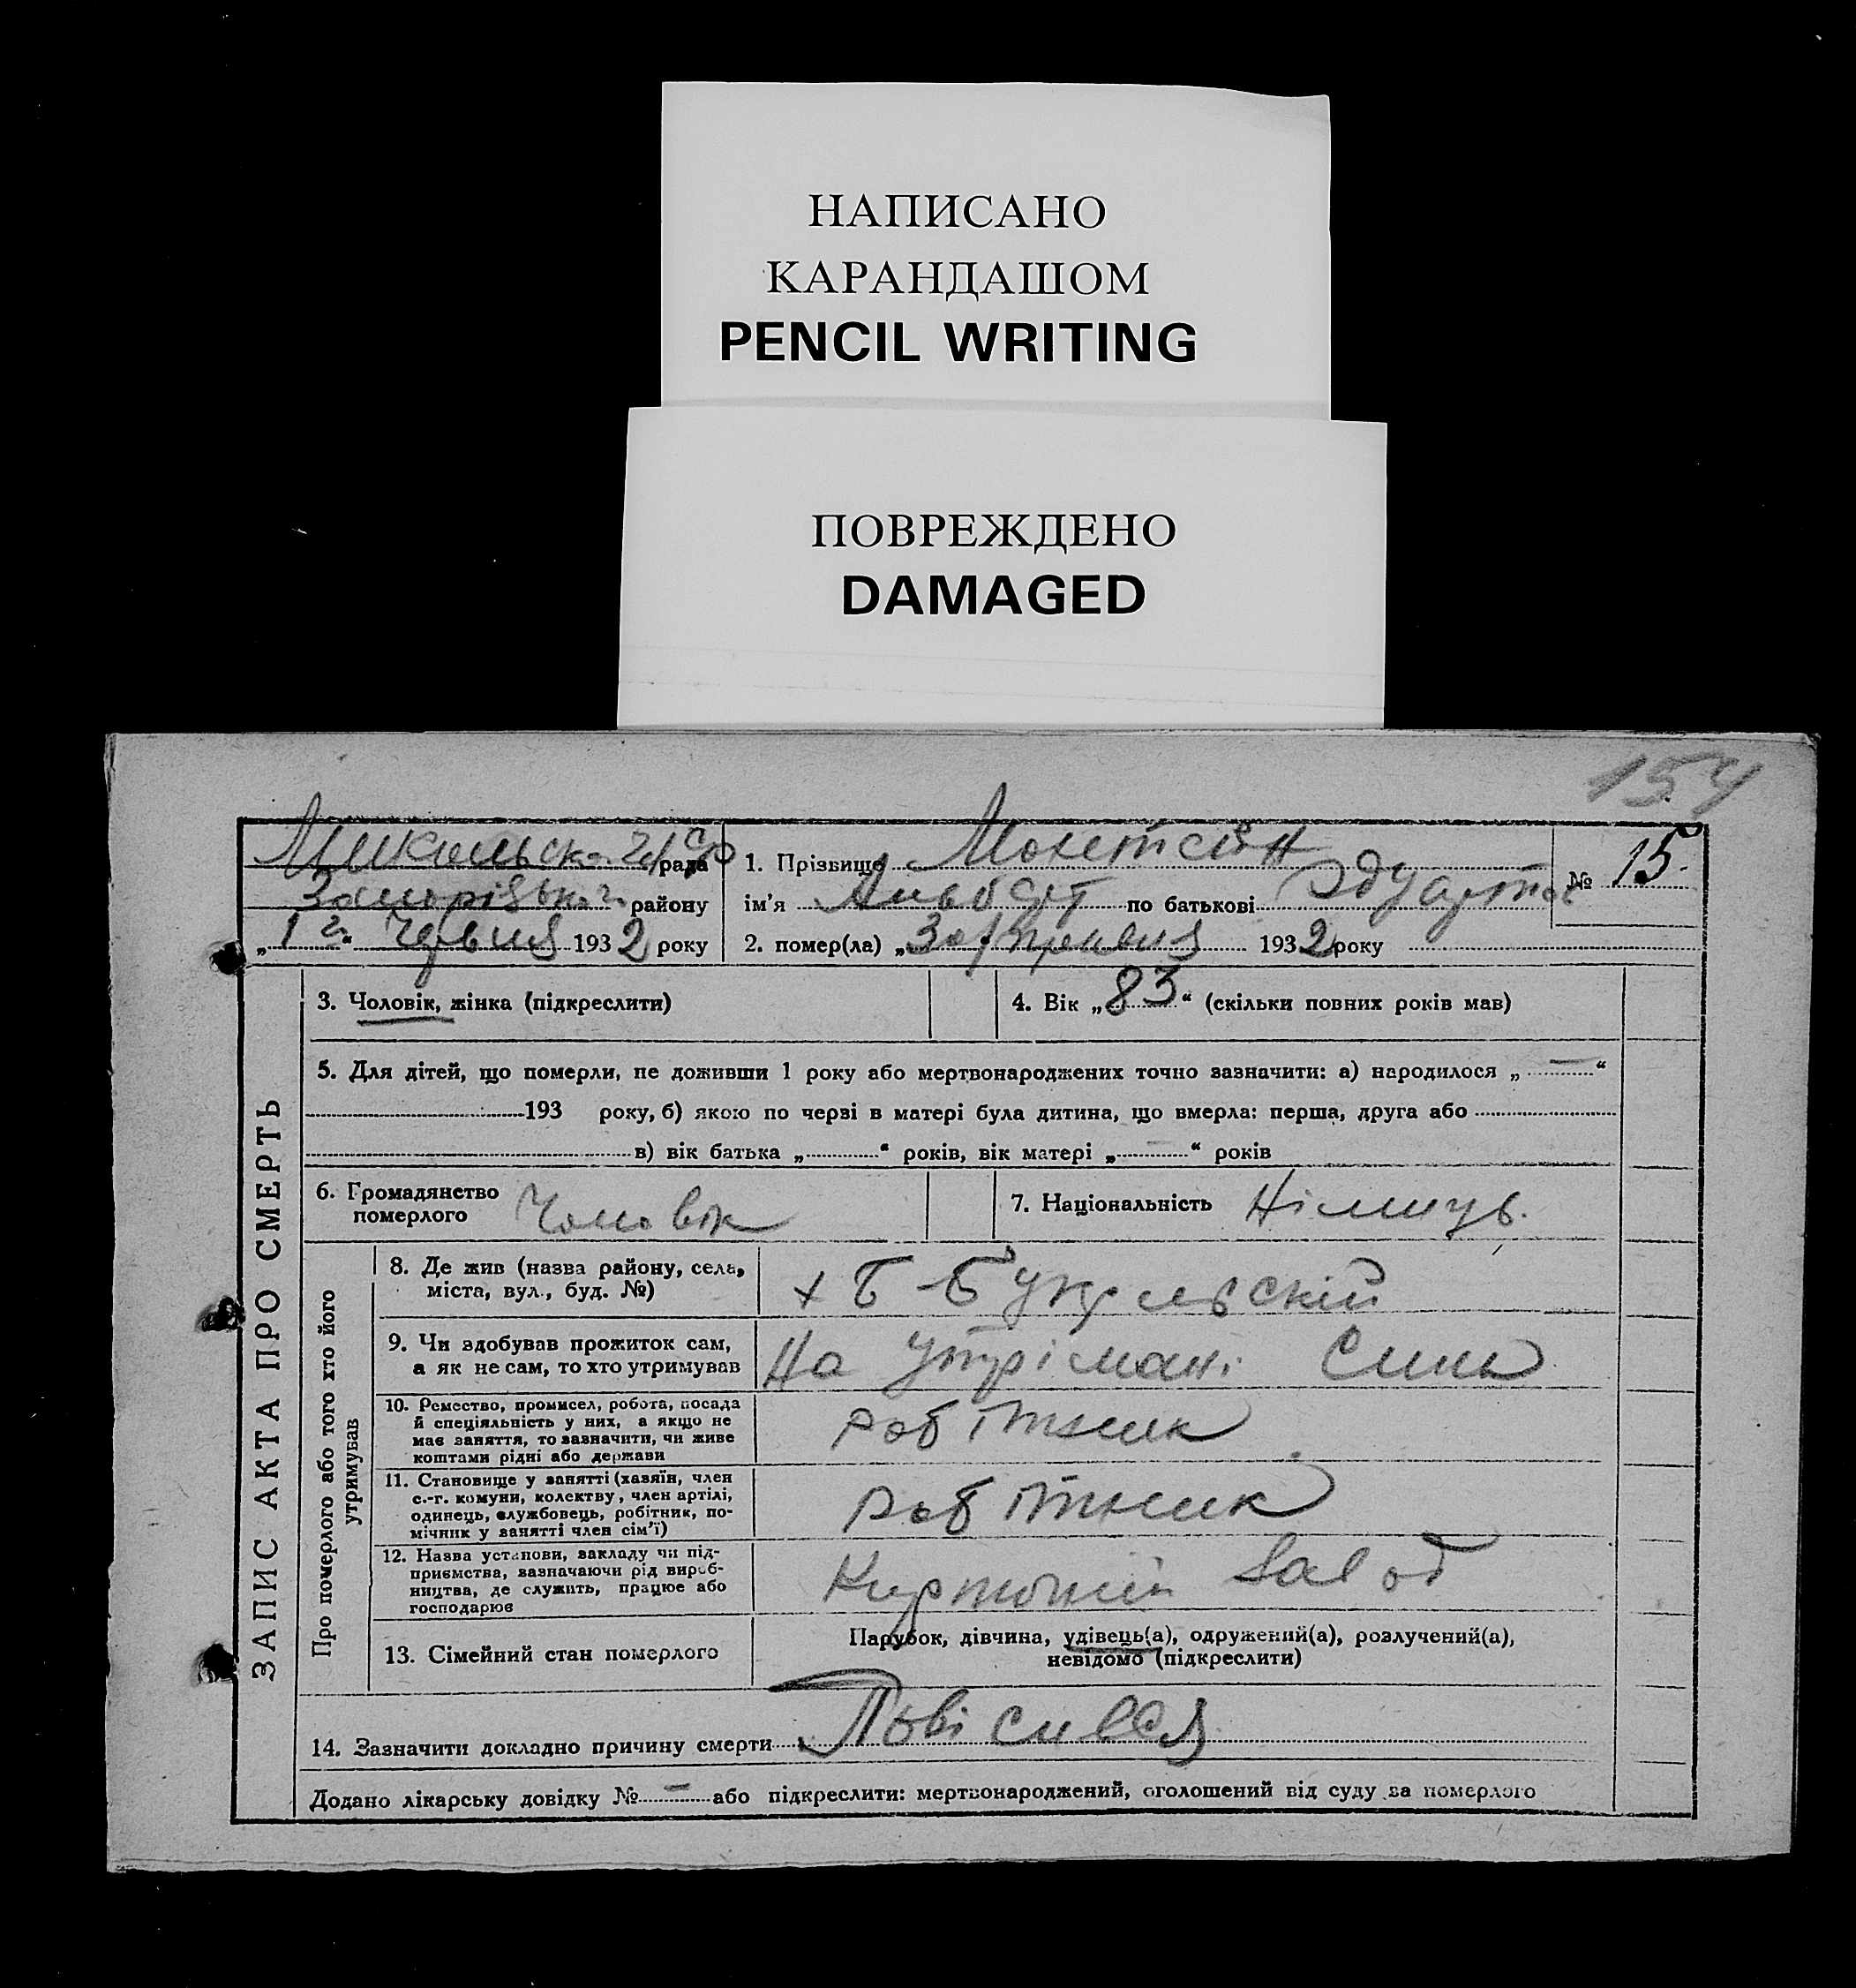 НАПИСАНО
КАРАНДАШОМ
PENCIL WRITING
ПОВРЕЖДЕНО
DAMAGED
154
рада
району
„1“ 1932 року
1. Прізвище
ім’я Альберт по батькові
2. помер(ла) „30“ травня 1932 року
№ 15
ЗАПИС АКТА ПРО СМЕРТЬ
3. Чоловік, жінка (підкреслити)
4. Вік „83“ (скільки повних років мав)
5. Для дітей, що померли, не доживши 1 року або мертвонароджених точно зазначити: а) народилося „—“
193 року, б) якою по черві в матері була дитина, що вмерла: перша, друга або
в) вік батька „“ років, вік матері „—“ років
6. Громадянство
померлого Чоловік
7. Національність Німиць
Про померлого або того хто його
утримував
8. Де жив (назва району, села,
міста, вул., буд. №)
9. Чи здобував прожиток сам,
а як не сам, то хто утримував
На утрімані Сина
10. Ремество, промисел, робота, посада
й спеціяльність у них, а якщо не
має заняття, то зазначити, чи живе
коштами рідні або держави
робітник
11. Становище у занятті (хазяїн, член
с.-г. комуни, колектву, член артілі,
одинець, службовець, робітник, по-
мічник у занятті член сім’ї)
робітник
12. Назва установи, закладу чи під-
приємства, зазначаючи рід вироб-
ництва, де служить, працює або
господарює
13. Сімейний стан померлого
Парубок, дівчина, удівець(а), одружений(а), розлучений(а),
невідомо (підкреслити)
14. Зазначити докладно причину смерти Повісився
Додано лікарську довідку № — або підкреслити: мертвонароджений, оголошений від суду за померлого